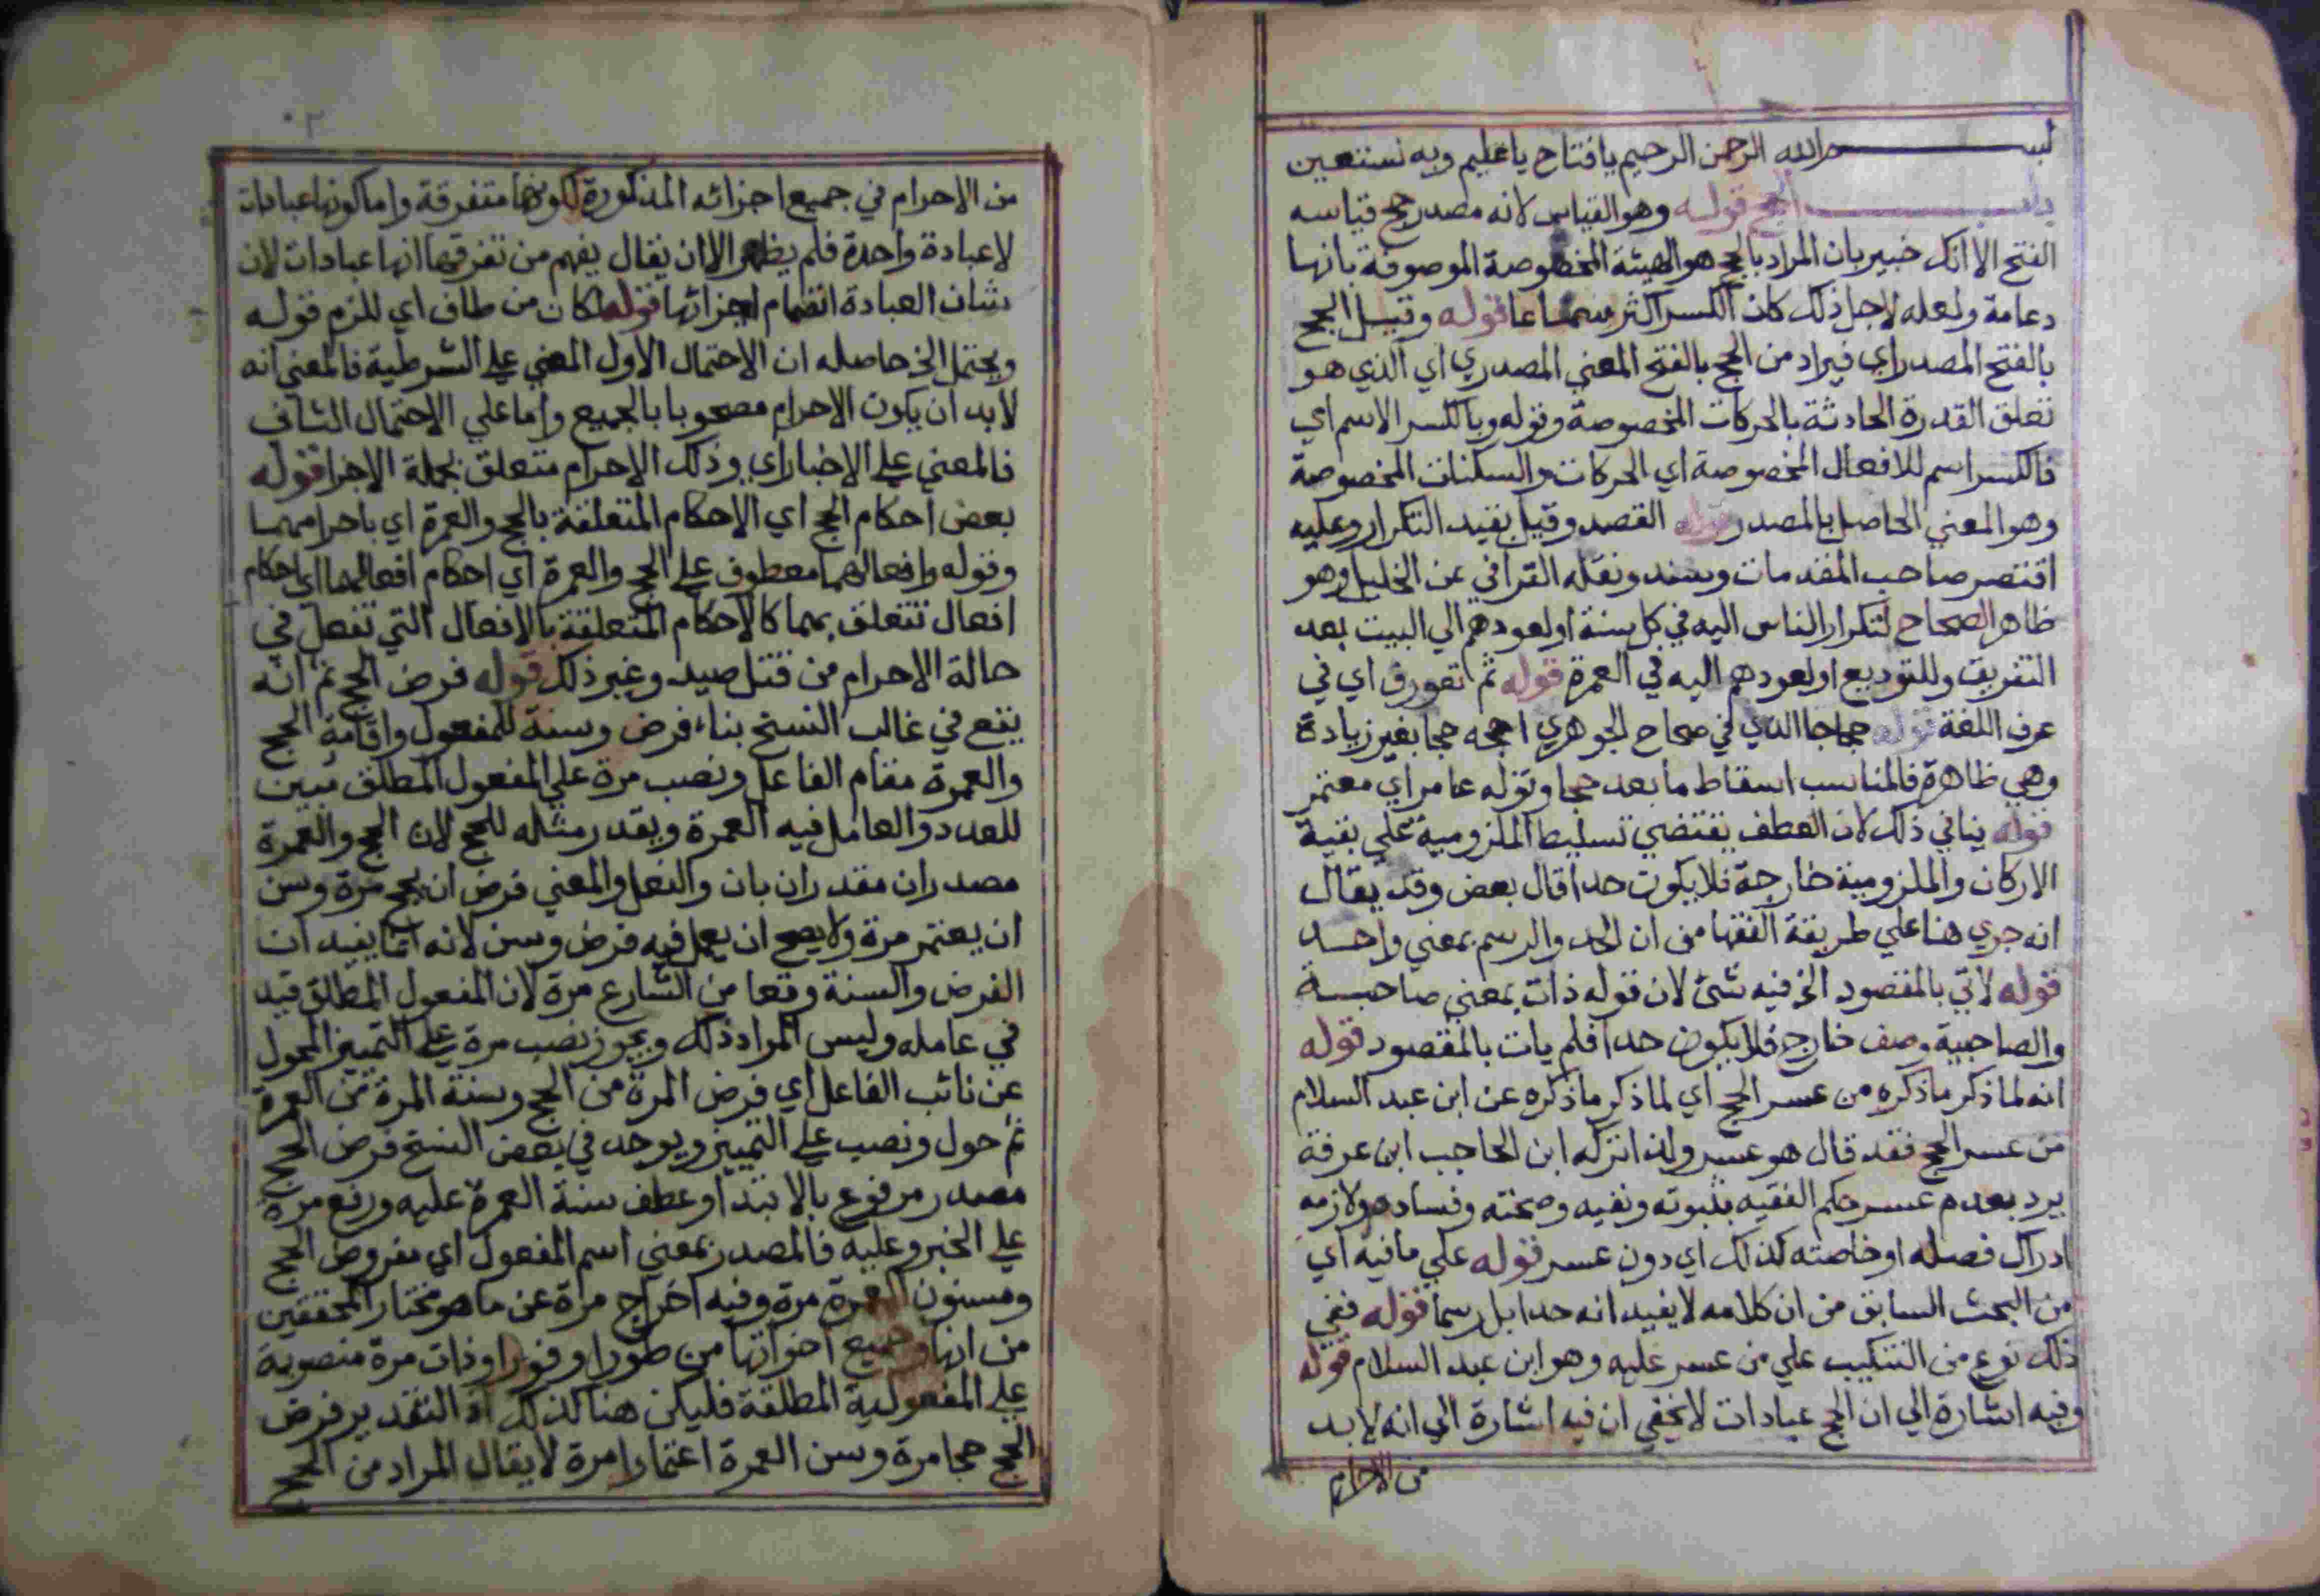 بسم الله الرحمن الرحيم يا فتاح يا عليم وبه نستعين
باب الحج قوله وهو القياس لانه مصدر حج قياسه
الفتح الا انك خبير بان المراد بالحج هو الهيئة المخصوصة الموصوفة بانها
دعامة ولعله لاجل ذلك كان الكسر اكثر سماعا قوله وقيل الحج
بالفتح المصدر اي فيراد من الحج بالفتح المعني المصدري اي الذي هو
تعلق القدرة الحادثة بالحركات المخصوصة وقوله وبالكسر الاسم اي
فالكسر اسم للافعال المخصوصة اي الحركات والسكنات المخصوصة
وهو المعني الحاصل بالمصدر قوله القصد وقيل بقيد التكرار وعليه
اقتصر صاحب المقدمات وسند ونقله القرافي عن الخليل وهو
ظاهر الصحاح لتكرار الناس اليه في كل سنة او لعودهم الي البيت بعد
التفريق وللتوديع او لعودهم اليه في العمرة قوله ثم تعورف اي في
عرف اللغة قوله حجاجا الذي في صحاح الجوهري احجه حجا بغير زيادة
وهي ظاهرة فالمناسب اسقاط ما بعد حجا وقوله عامر اي معتمر
قوله ينافي ذلك لان العطف يقتضي تسليط الملزومية علي بقية
الاركان والملزومية خارجة فلا يكون حدا قال بعض وقد يقال
انه جري هنا علي طريقة الفقها من ان الحد والرسم بمعني واحد
قوله لاتي بالمقصود الخ فيه شئ لان قوله ذات بمعني صاحبة
والصاحبية وصف خارج فلا يكون حدا فلم يات بالمقصود قوله
انه لما ذكر ما ذكره من عسر الحج اي لما ذكر ما ذكره عن ابن عبد السلام
من عسر الحج فقد قال هو عسير ولذا تركه ابن الحاجب ابن عرفة
يرد بعدم عسر حكم الفقيه بثبوته ونفيه وصحته وفساده ولازمه
ادراك فصله او خاصته كذلك اي دون عسر قوله علي ما فيه اي
من البحث السابق من ان كلامه لا يفيد انه حدا بل رسما قوله ففي
ذلك نوع من التنكيب علي من عسر عليه وهو ابن عبد السلام قوله
وفيه اشارة الي ان الحج عبادات لا يخفي ان فيه اشارة الي انه لابد
من الاحرام
٢
من الاحرام في جميع اجزائه المذكورة لكونها متفرقة واما كونها عبادات
لا عبادة واحدة فلم يظهر الا ان يقال يفهم من تفرقها انها عبادات لان
شان العبادة انضمام اجزائها قوله كان من طاف اي للزم قوله
ويحتمل الخ حاصله ان الاحتمال الاول المعني علي الشرطية فالمعني انه
لابد ان يكون الاحرام مصحوبا بالجميع واما علي الاحتمال الثاني
فالمعني علي الاخبار اي وذلك الاحرام متعلق بجملة الاجزا قوله
بعض احكام الحج اي الاحكام المتعلقة بالحج والعمرة اي باحرامهما
وقوله وافعالهما معطوف علي الحج والعمرة اي احكام افعالهما اي احكام
افعال تتعلق بهما كالاحكام المتعلقة بالافعال التي تفعل في
حالة الاحرام من قتل صيد وغير ذلك قوله فرض الحج ثم انه
يقع في غالب النسخ بناء فرض وسنة للمفعول واقامة الحج
والعمرة مقام الفاعل ونصب مرة علي المفعول المطلق مبين
للعدد والعامل فيه العمرة ويقدر مثله للحج لان الحج والعمرة
مصدران مقدران بان والفعل والمعني فرض ان يحج مرة وسن
ان يعتمر مرة ولا يصح ان يعمل فيه فرض وسن لانه انما يفيد ان
الفرض والسنة وقعا من الشارع مرة لان المفعول المطلق قيد
في عامله وليس المراد ذلك ويجوز نصب مرة علي التمييز المحول
عن نائب الفاعل اي فرض المرة من الحج وسنة المرة من العمرة
ثم حول ونصب علي التمييز ويوجد في بعض النسخ فرض الحج
مصدر مرفوع بالابتدا وعطف سنة العمرة عليه ورفع مرة
علي الخبر وعليه فالمصدر بمعني اسم المفعول اي مفروض الحج
ومسنون العمرة مرة وفيه اخراج مرة عن ما هو مختار المحققين
من انها وجميع اخواتها من طورا وفورا وذات مرة منصوبة
علي المفعولية المطلقة فليكن هنا كذلك اذ التقدير فرض
الحج حجا مرة وسن العمرة اعتمارا مرة لا يقال المراد من الحج